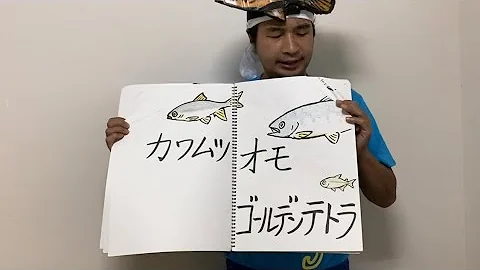 カワムツ
オモ
ゴールデンテトラ